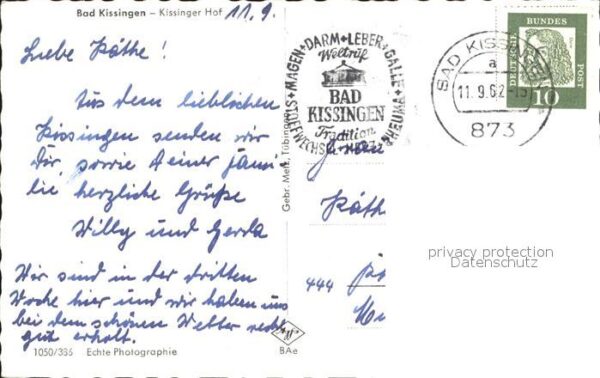 Bad Kissingen – Kissinger Hof 11.9.
Liebe Käthe!
Aus dem lieblichen
Kissingen senden wir
Dir, sowie Deiner Fami-
lie herzliche Grüße
Willy und Gerda
Wir sind in der dritten
Woche hier und wir haben uns
bei dem schönen Wetter recht
gut erholt.
1050/336 Echte Photographie
Gebr. Metz, Tübingen
BAe
STOFFWECHSEL + MAGEN + DARM + LEBER + GALLE + RHEUMA
Weltruf
BAD
KISSINGEN
Tradition
BAD KISSINGEN
a
11.9.62-15
873
DEUTSCHE BUNDES POST
10
Käthe
444
privacy protection
Datenschutz